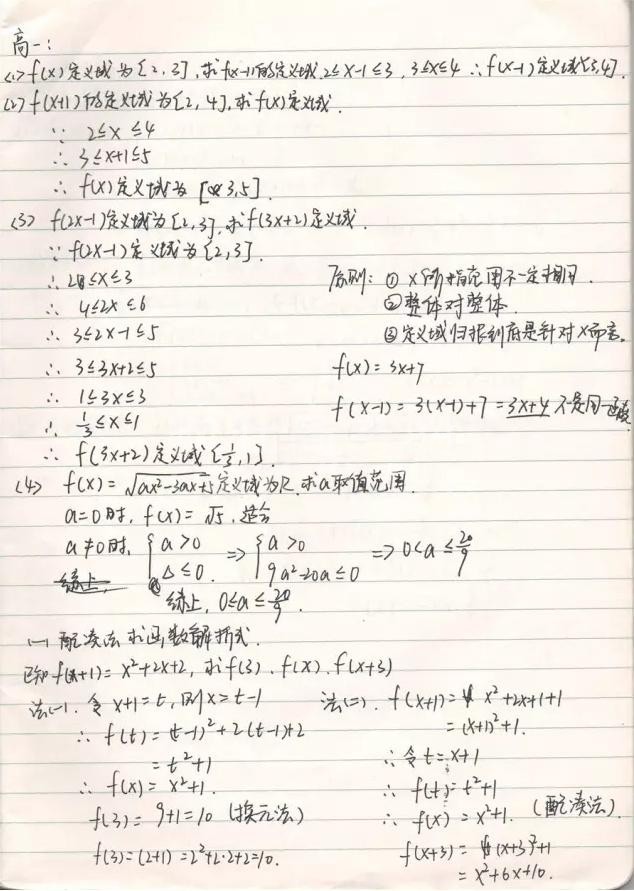 高一:
(1) f(x)定义域为[2,3],求f(x-1)的定义域,2≤x-1≤3,3≤x≤4 ∴f(x-1)定义域[3,4].
(2) f(x+1)的定义域为[2,4],求f(x)定义域.
∵ 2≤x≤4
∴ 3≤x+1≤5
∴ f(x)定义域为 [3,5].
(3) f(2x-1)定义域为[2,3],求f(3x+2)定义域.
∵ f(2x-1)定义域为[2,3].
∴ 2≤x≤3
∴ 4≤2x≤6
∴ 3≤2x-1≤5
∴ 3≤3x+2≤5
∴ 1≤3x≤3
∴ 1/3≤x≤1
∴ f(3x+2)定义域[1/3,1].
原则: ① x所指范围不一定相同.
② 整体对整体.
③ 定义域归根到底是针对x而言.
f(x)=3x+7
f(x-1)=3(x-1)+7=3x+4 不是同一函数
(4) f(x)=√(ax²-3ax+5)定义域为R,求a取值范围.
a=0时, f(x)=√5, 适合
a≠0时, { a>0 Δ≤0. => { a>0 9a²-20a≤0 => 0<a≤20/9
综上,
综上, 0≤a≤20/9.
(一) 配凑法求函数解析式.
已知f(x+1)=x²+2x+2,求f(3).f(x).f(x+3)
法(一). 令x+1=t,则x=t-1
∴ f(t)=(t-1)²+2(t-1)+2
=t²+1
∴ f(x)=x²+1.
f(3)=9+1=10 (换元法)
f(3)=(2+1)=2²+2·2+2=10.
法(二). f(x+1)=x²+2x+1+1
=(x+1)²+1.
∴ 令t=x+1
∴ f(t)=t²+1
∴ f(x)=x²+1. (配凑法).
f(x+3)=(x+3)²+1
=x²+6x+10.